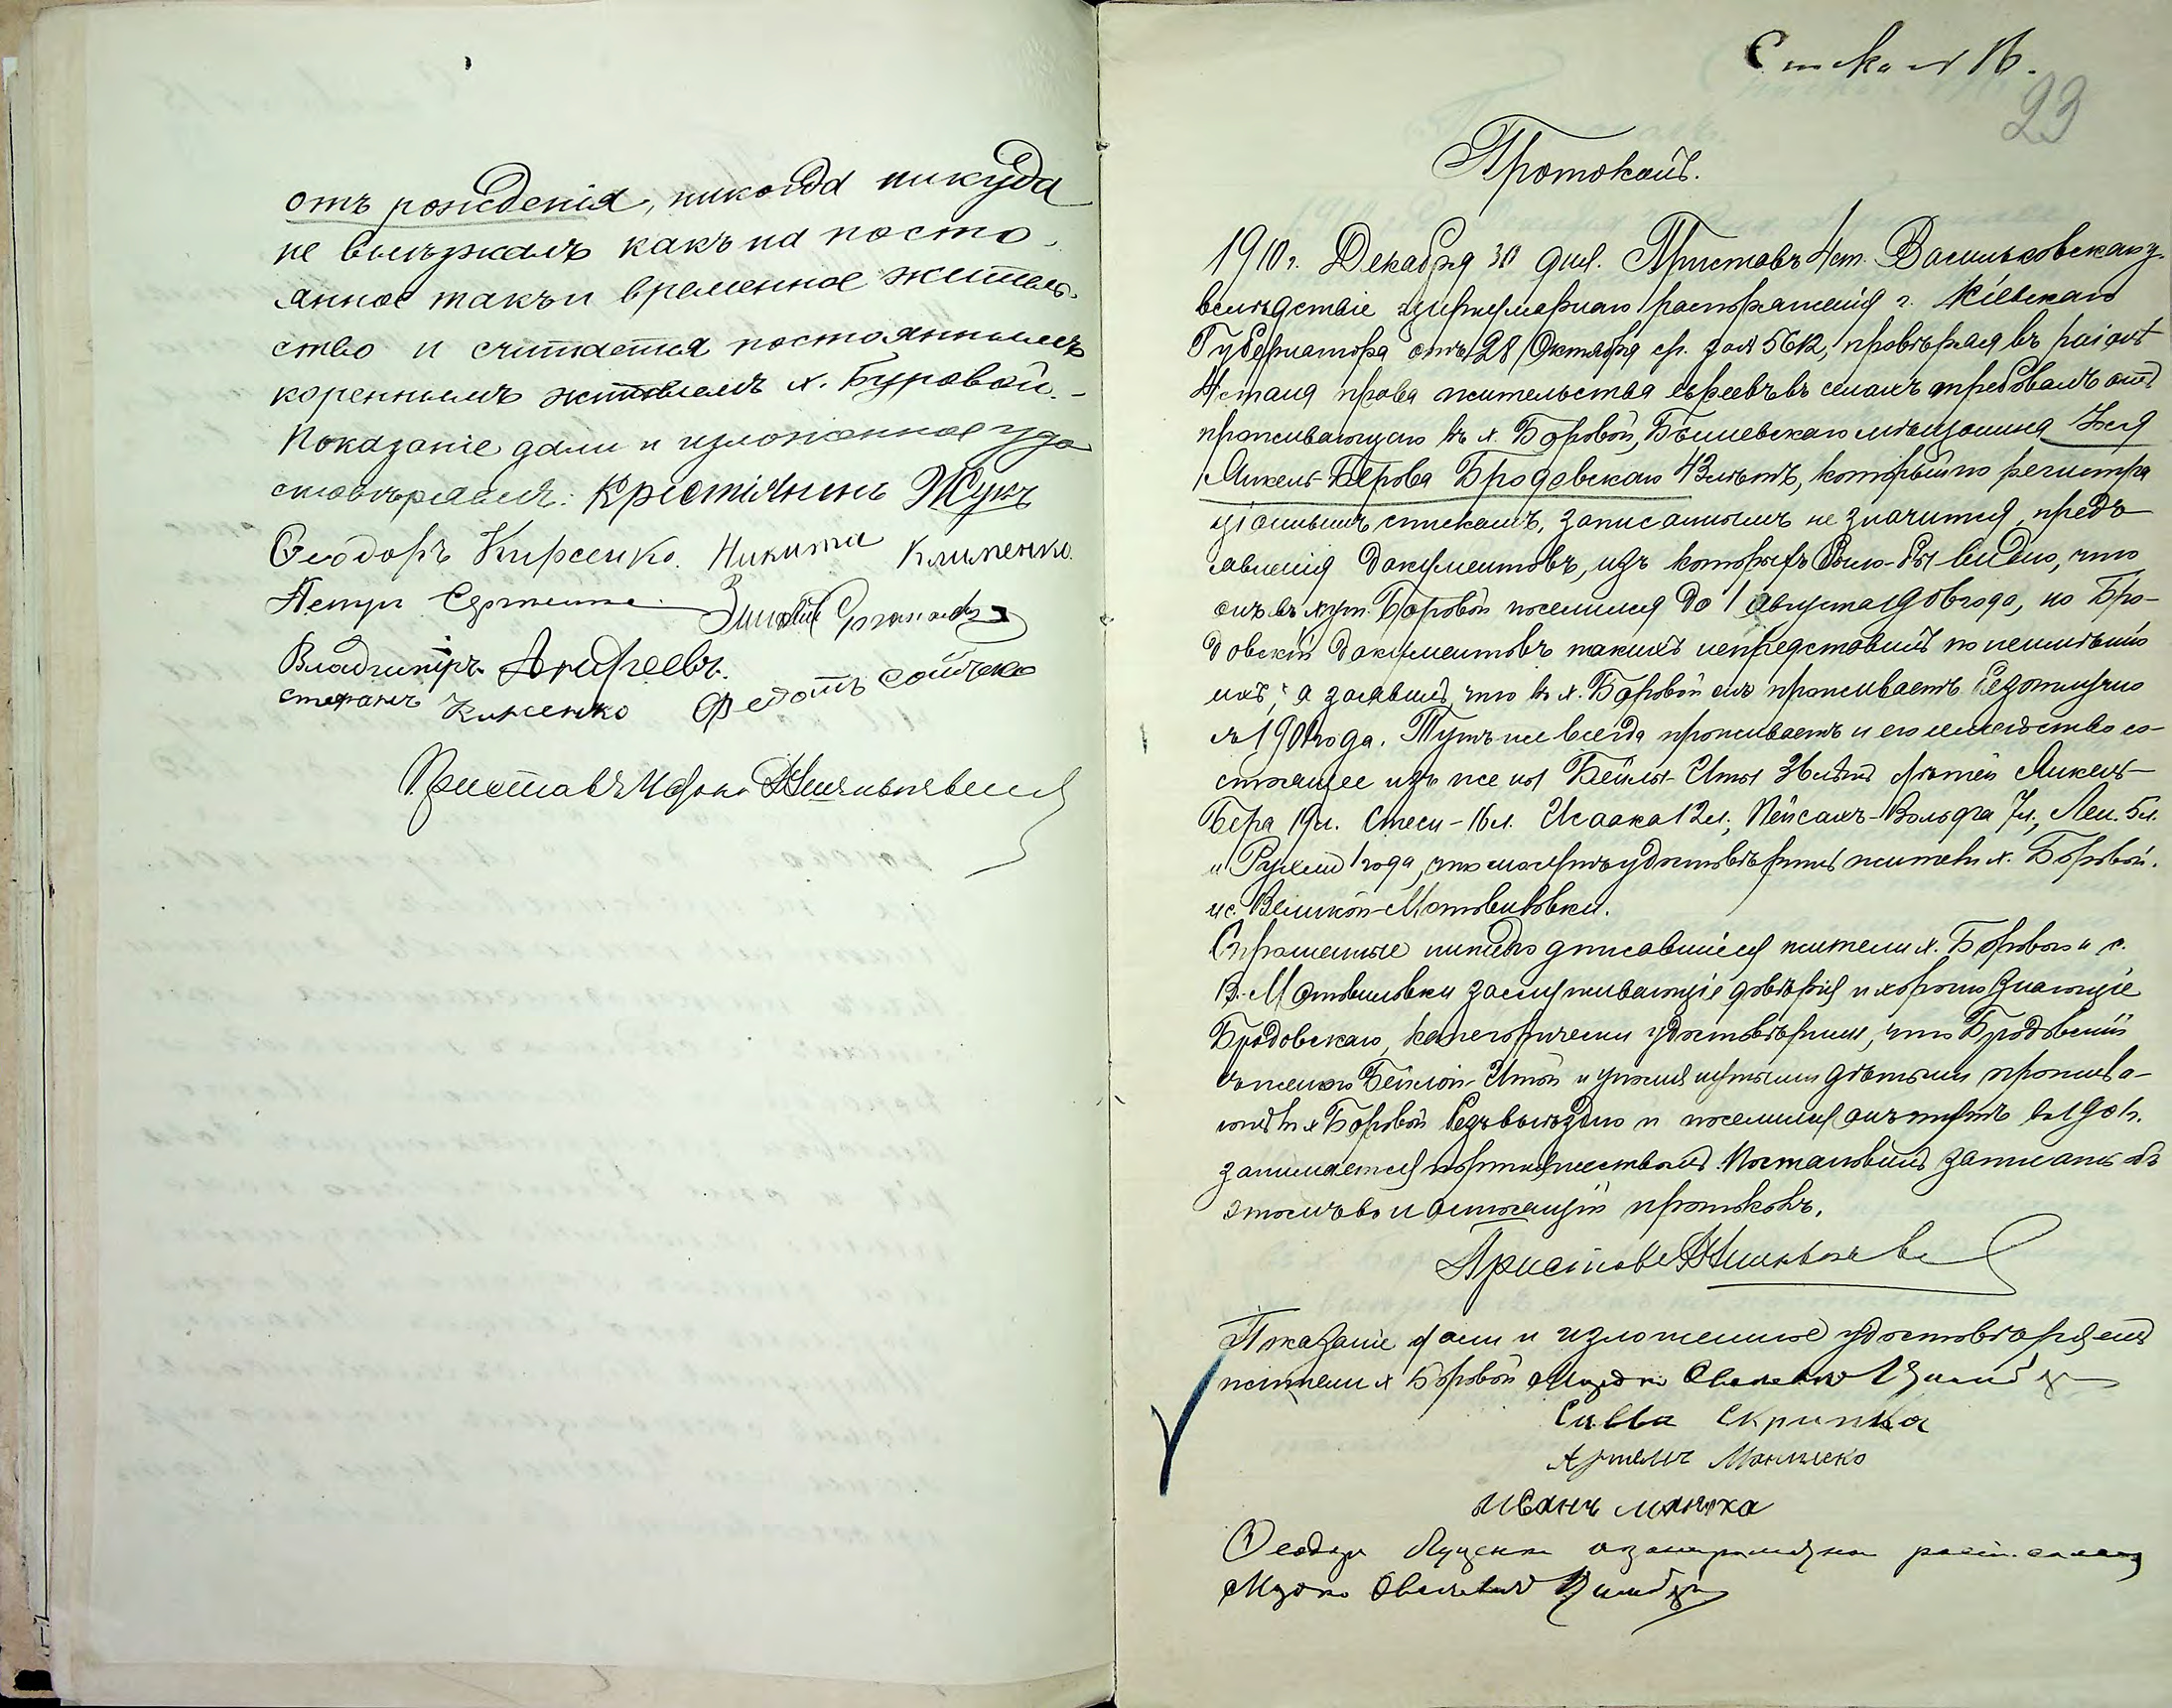 отъ рожденія, никогда никуда
не выѣзжалъ какъ на посто-
янное такъ и временное житель-
ство и считается постояннымъ
кореннымъ жителемъ х. Буровой. -
Показаніе дали и изложенное удо
стовѣряемъ: Крестіянинъ Жукъ
Ѳеодоръ Кирсенко. Никита Клименко.
Петръ
Владимиръ Андреевъ.
степанъ Федотъ
Приставъ
Списка № 16.
23
Протоколъ.
1910 г. Декабря 30 дня. Приставъ 4 ст. Васильковскаго у.
вслѣдствіе циркулярнаго распоряженія г. Кіевскаго
Губернатора отъ 28 Октября ср. за № 5612, провѣряя въ раіонѣ
4 стана права жительства евреевъ въ селахъ требовалъ отъ
проживающаго въ х. Боровой, мѣщанина
Янкель-Берова Бродовскаго 43 лѣтъ, который по регистра
ціоннымъ спискамъ, записаннымъ не значится, предъ
явленія документовъ, изъ которыхъ было-бы видно, что
онъ въ хут. Боровой поселился до 1 августа 1906 года, но Бро-
довскій документовъ такихъ не представилъ по неимѣнію
ихъ, а заявилъ, что въ х. Боровой онъ проживаетъ безотлучно
съ 1901 года. Тутъ же всегда проживаетъ и его семейство со-
стоящее изъ жены Бейлы-Иты 36 лѣтъ дѣтей Янкель-
Бера 19 л. Стеси - 16 л. Исаака 12 л., Пейсахъ-Вольфа 7 л., Леи 5 л.
и Рухли 1 года, что могутъ удостовѣрить жители х. Боровой.
и с. Великой-Мотовиловки.
Спрошенные нижеподписавшіеся жители х. Боровой и с.
В.-Мотовиловки заслуживающіе довѣрія и хорошо знающіе
Бродовскаго, категорически удостовѣрили, что Бродовскій
съ женою Бейлой-Итой и упомянутыми дѣтьми прожива-
ютъ въ х Боровой безвыѣздно и поселился онъ тутъ въ 1901 г.
занимается портняжествомъ. Постановилъ записать объ
этомъ въ настоящій протоколъ.
Приставъ
Показаніе дали и изложенное удостовѣряемъ
жители х Боровой
Савва Скрипка
Артемъ
Иванъ
Ѳеодоръ